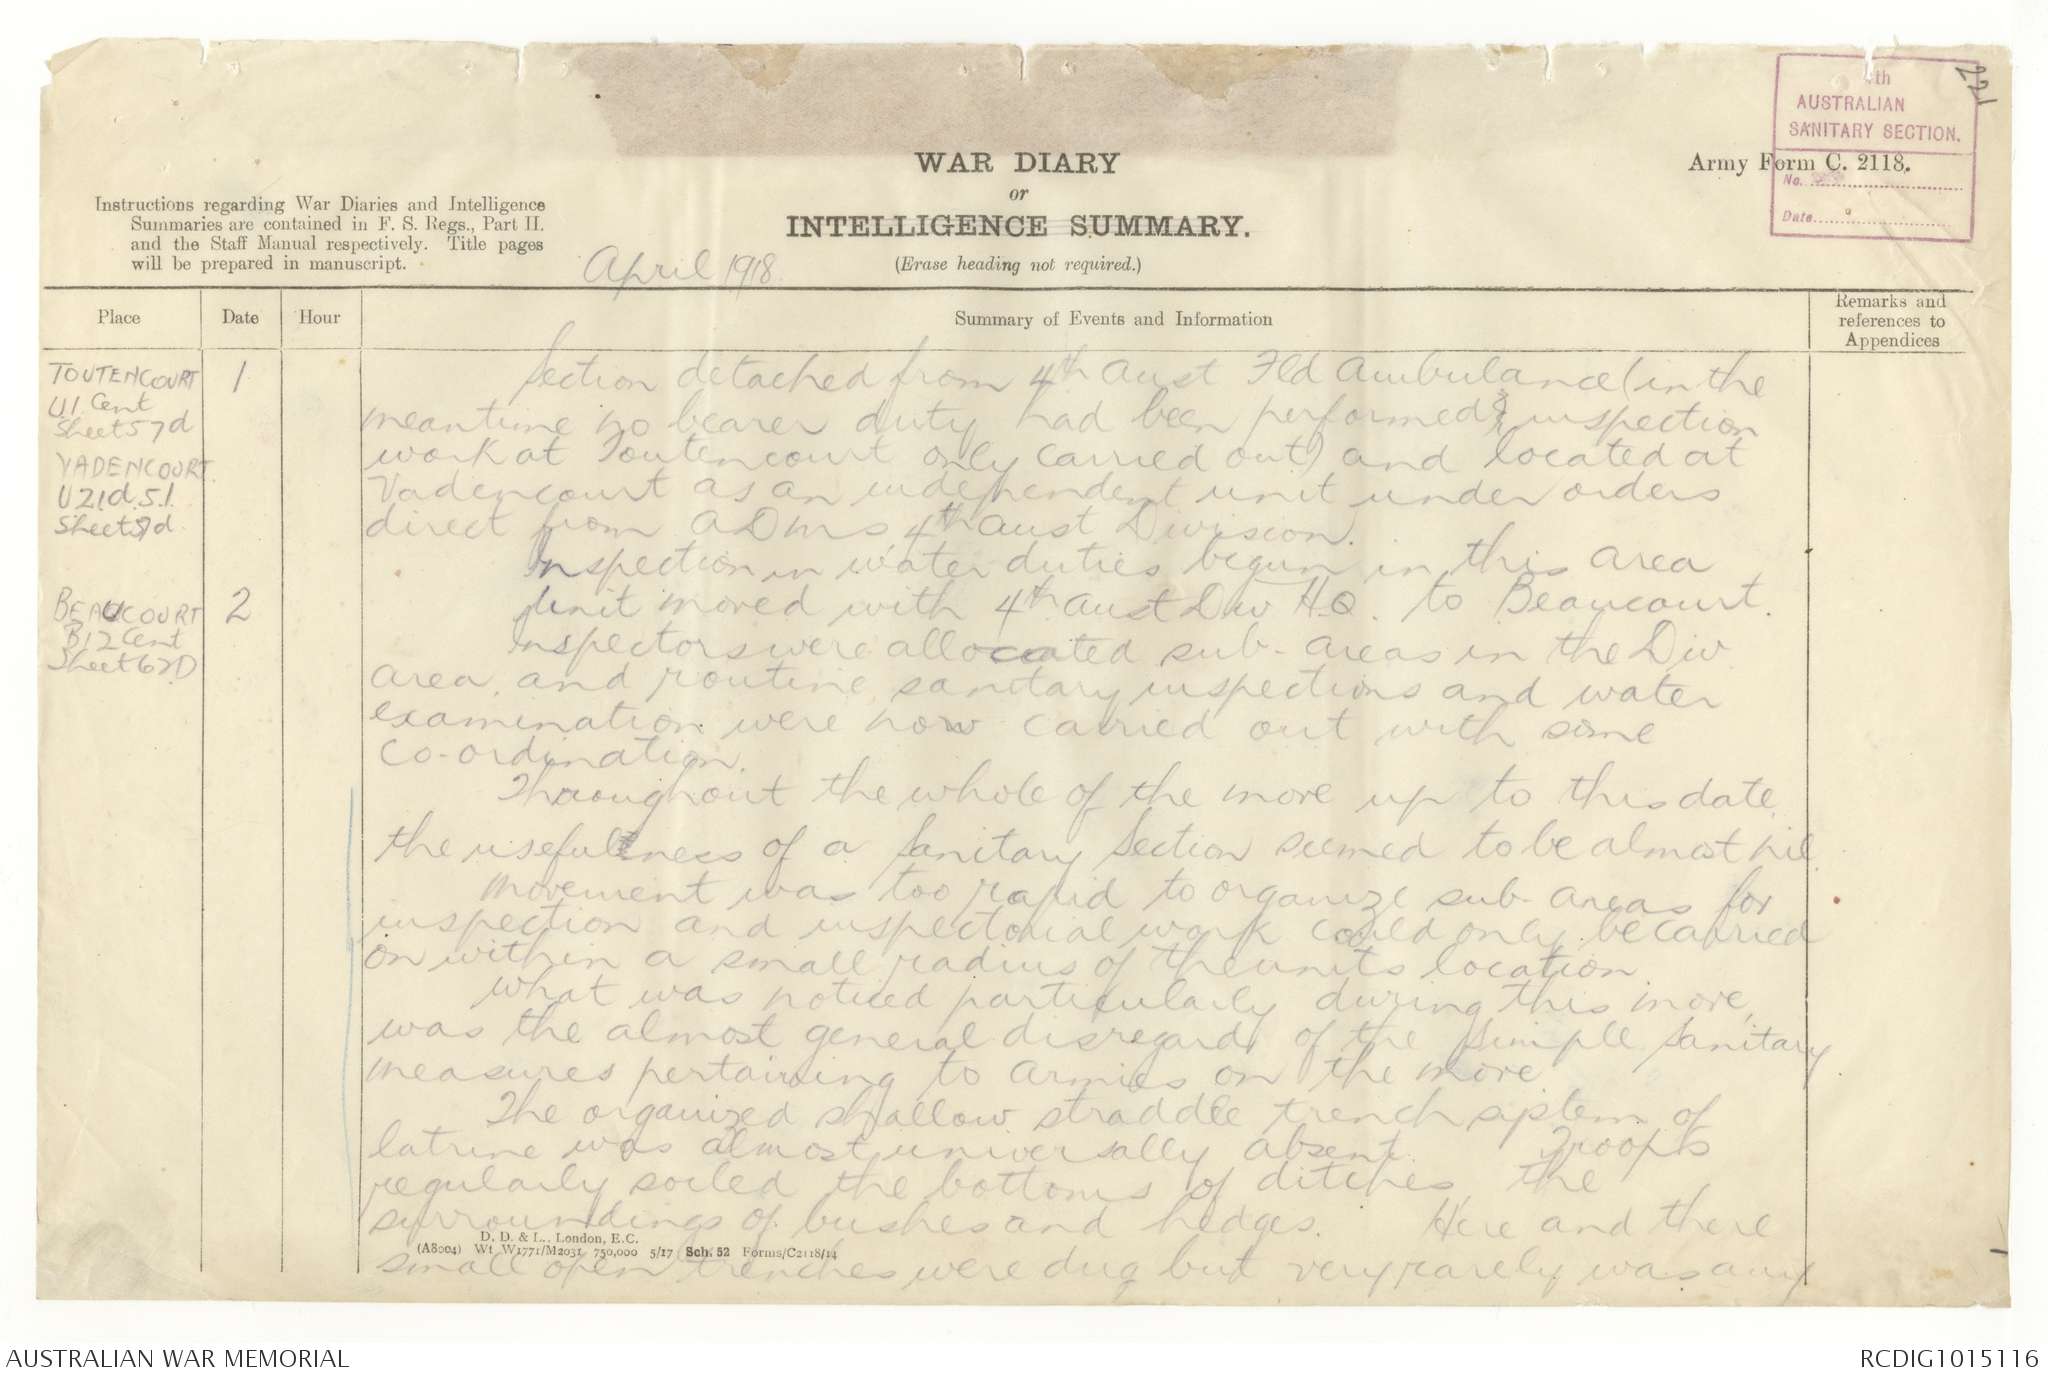 221
4th
AUSTRALIAN
SANITARY SECTION.
No.
Date
WAR DIARY
or
INTELLIGENCE SUMMARY.
(Erase heading not required.)
Army Form C. 2118.
Instructions regarding War Diaries and Intelligence
Summaries are contained in F. S. Regs., Part II.
and the Staff Manual respectively. Title pages
will be prepared in manuscript.
April 1918.
Place
Date
Hour
Summary of Events and Information
Remarks and
references to
Appendices
TOUTENCOURT
U1 Cent
Sheet 57d
1
Section detached from 4th Aust Fld Ambulance (in the
meantime no bearer duty had been performed & inspection
work at Toutencourt only carried out) and located at
VADENCOURT
U21d.5.1.
Sheet 57d
Vadencourt as an independent unit under orders
direct from ADMS 4th Aust Division.
Inspection in water duties begun in this area
BEAUCOURT
B12 Cent
Sheet 62D
2
Unit moved with 4th Aust Div H.Q. to Beaucourt.
Inspectors were allocated sub-areas in the Div
area, and routine sanitary inspections and water
examination were now carried out with some
co-ordination.
Throughout the whole of the move up to this date,
the usefulness of a Sanitary Section seemed to be almost nil
Movement was too rapid to organize sub-areas for
inspection and inspectorial work could only be carried
on within a small radius of the units location.
What was noticed particularly during this move,
was the almost general disregard of the simple sanitary
measures pertaining to armies on the move
The organized shallow straddle trench system of
latrine was almost universally absent. Troops
regularly soiled the bottoms of ditches, the
surroundings of bushes and hedges. Here and there
small open trenches were dug but very rarely was any
D. D. & L., London, E.C.
(A8004) Wt W1771/M2031 750,000 5/17 Sch. 52 Forms/C2118/14
AUSTRALIAN WAR MEMORIAL
RCDIG1015116